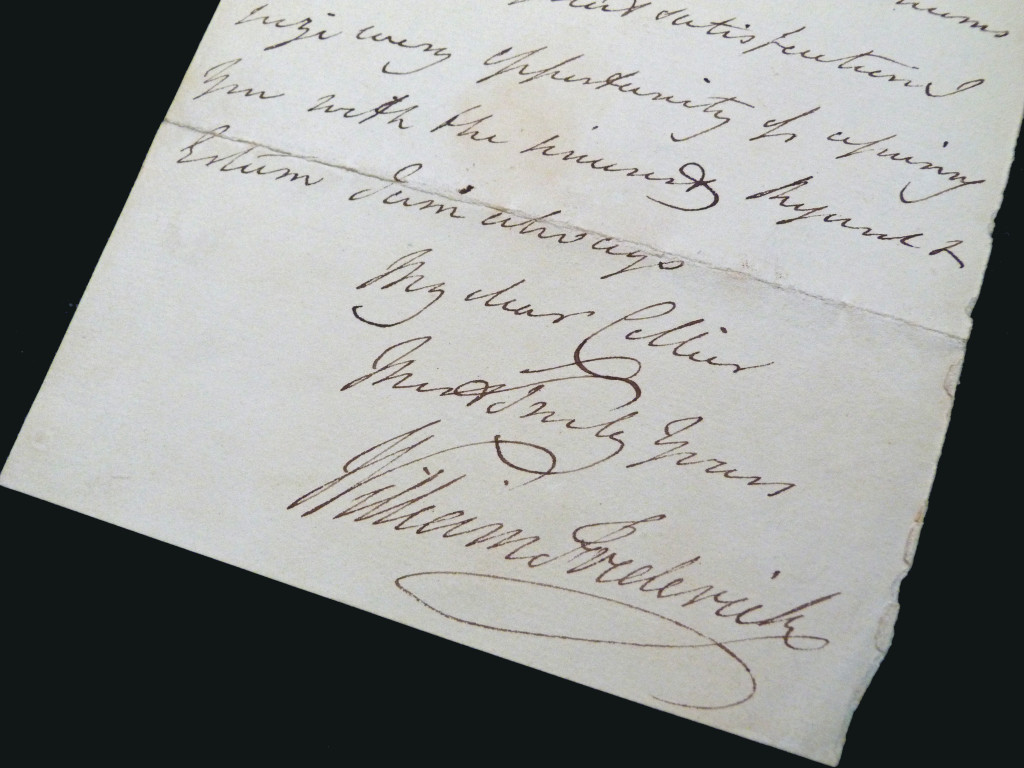 great satisfaction I
every opportunity of assuring
You with the sincerest Regard &
Esteem I am always
My dear Collier
Most Truly Yours
William Frederick